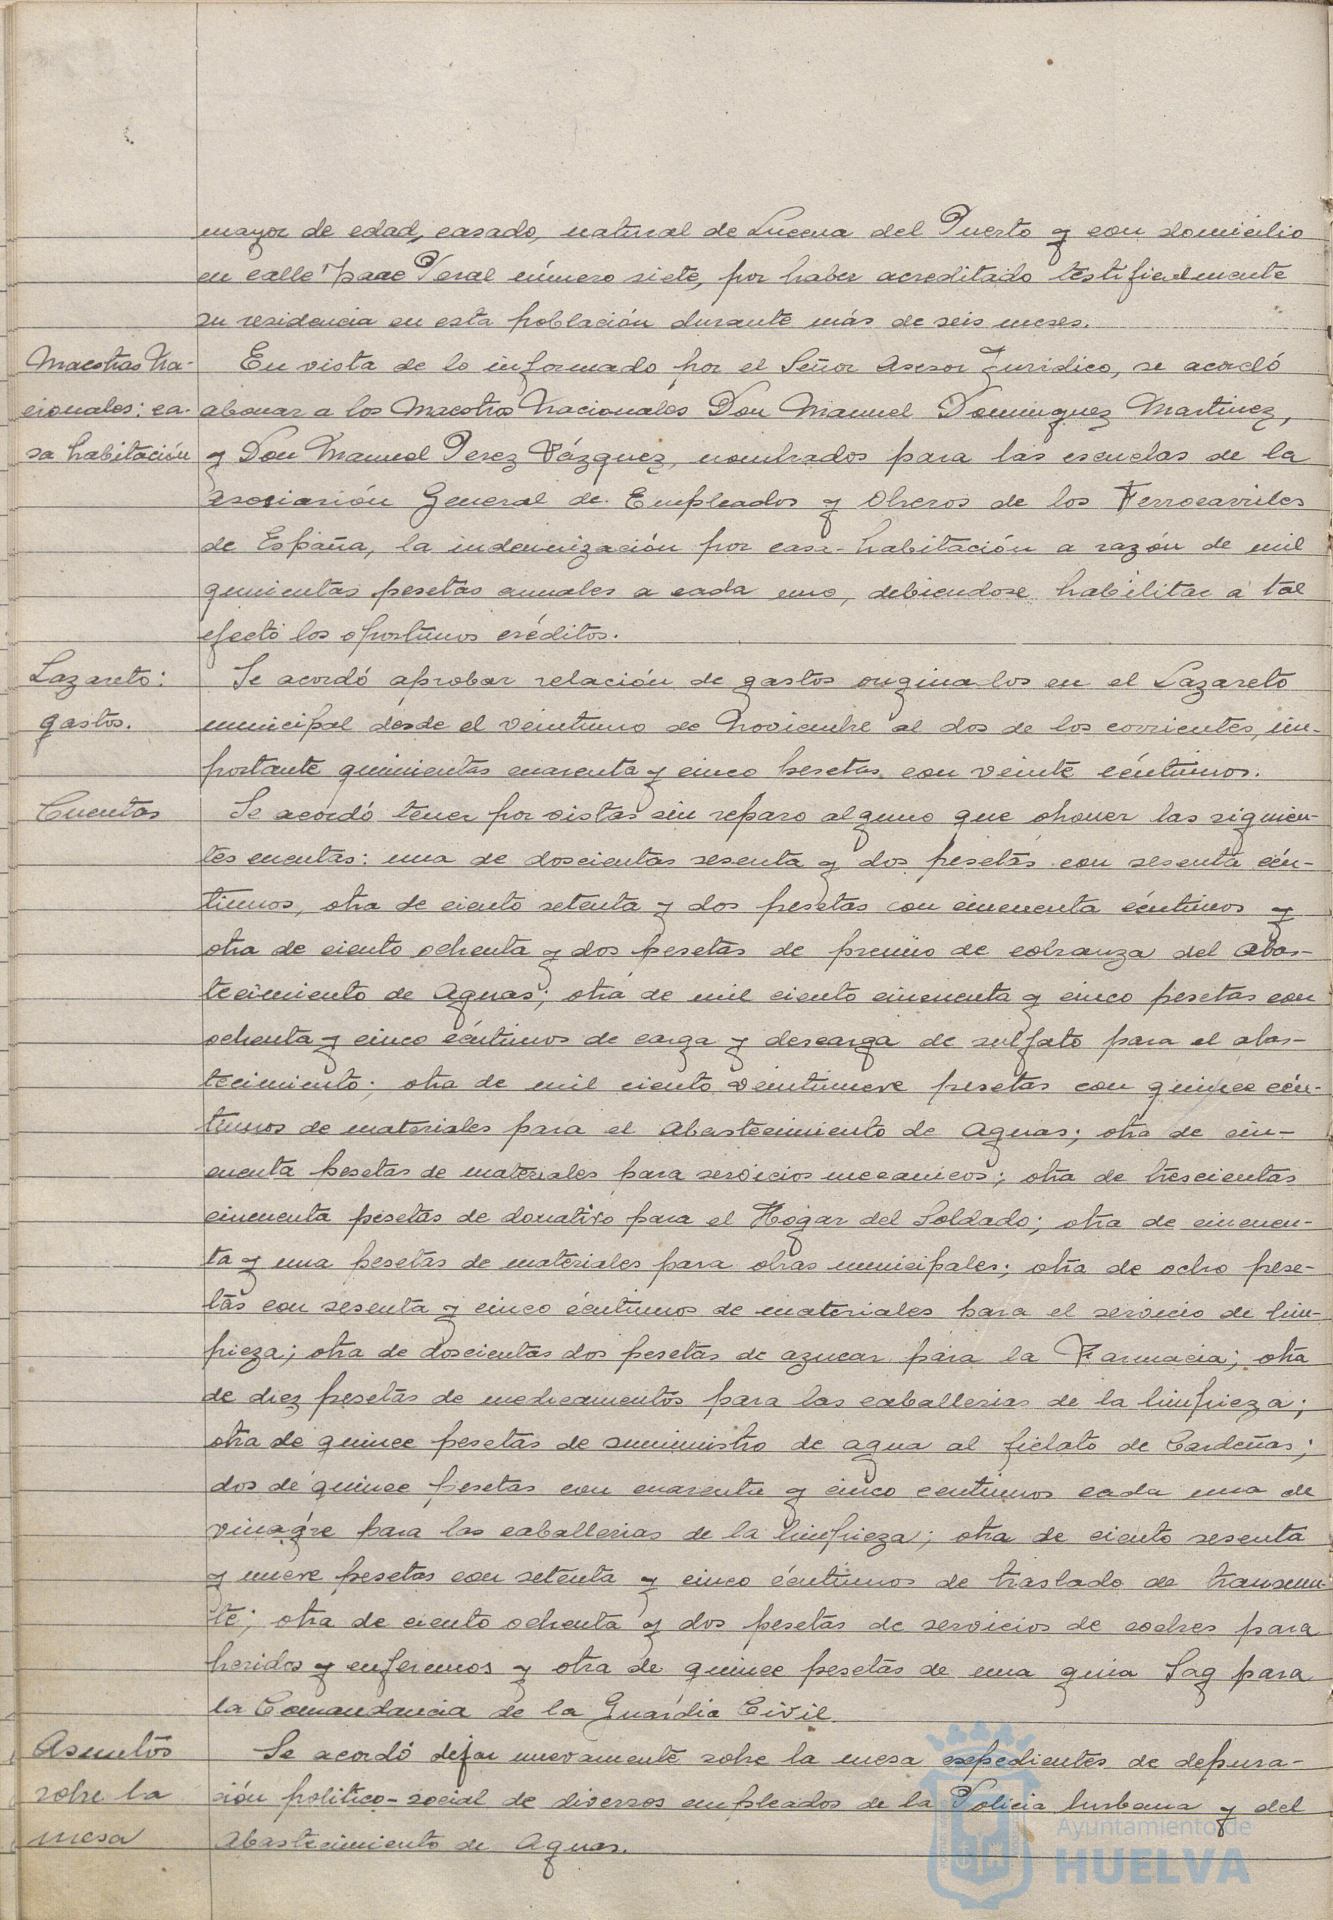 mayor de edad, casado, natural de Lucena del Puerto y con domicilio
en calle Isaac Peral número siete, por haber acreditado testificalmente
su residencia en esta población durante más de seis meses.
Maestras Na-
cionales: ca-
sa habitación
En vista de lo informado por el Señor Asesor Jurídico, se acordó
abonar a los Maestros Nacionales Don Manuel Dominguez Martinez,
y Don Manuel Perez Vázquez, nombrados para las escuelas de la
Asociación General de Empleados y Obreros de los Ferrocarriles
de España, la indemnización por casa-habitación a razón de mil
quinientas pesetas anuales a cada uno, debiendose habilitar a tal
efecto los oportunos créditos.
Lazareto:
gastos.
Se acordó aprobar relación de gastos originados en el Lazareto
municipal desde el veintiuno de Noviembre al dos de los corrientes, im-
portante quinientas cuarenta y cinco pesetas con veinte céntimos.
Cuentas
Se acordó tener por vistas sin reparo alguno que oponer las siguien-
tes cuentas: una de doscientas sesenta y dos pesetas con sesenta cén-
timos, otra de ciento setenta y dos pesetas con cincuenta céntimos y
otra de ciento ochenta y dos pesetas de premio de cobranza del Abas-
tecimiento de Aguas; otra de mil ciento cincuenta y cinco pesetas con
ochenta y cinco céntimos de carga y descarga de sulfato para el abas-
tecimiento; otra de mil ciento veintinueve pesetas con quince cén-
timos de materiales para el Abastecimiento de Aguas; otra de cin-
cuenta pesetas de materiales para servicios mecanicos; otra de trescientas
cincuenta pesetas de donativo para el Hogar del Soldado; otra de cincuen-
ta y una pesetas de materiales para obras municipales; otra de ocho pese-
tas con sesenta y cinco céntimos de materiales para el servicio de lim-
pieza; otra de doscientas dos pesetas de azucar para la Farmacia; otra
de diez pesetas de medicamentos para las caballerias de la limpieza;
otra de quince pesetas de suministro de agua al fielato de Cardeñas;
dos de quince pesetas con cuarenta y cinco centimos cada una de
vinagre para las caballerias de la limpieza; otra de ciento sesenta
y nueve pesetas con setenta y cinco céntimos de traslado de transeun-
te; otra de ciento ochenta y dos pesetas de servicios de coches para
heridos y enfermos y otra de quince pesetas de una guia Sag para
la Comandancia de la Guardia Civil.
Asuntos
sobre la
mesa
Se acordó dejar nuevamente sobre la mesa expedientes de depura-
ción politico-social de diversos empleados de la Policia Urbana y del
Abastecimiento de Aguas.
Ayuntamiento de
HUELVA